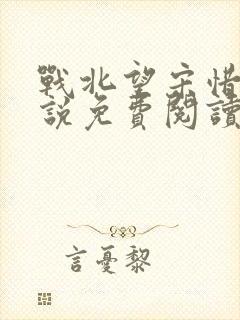 戰北望宋惜
說免費閱讀
言憂黎